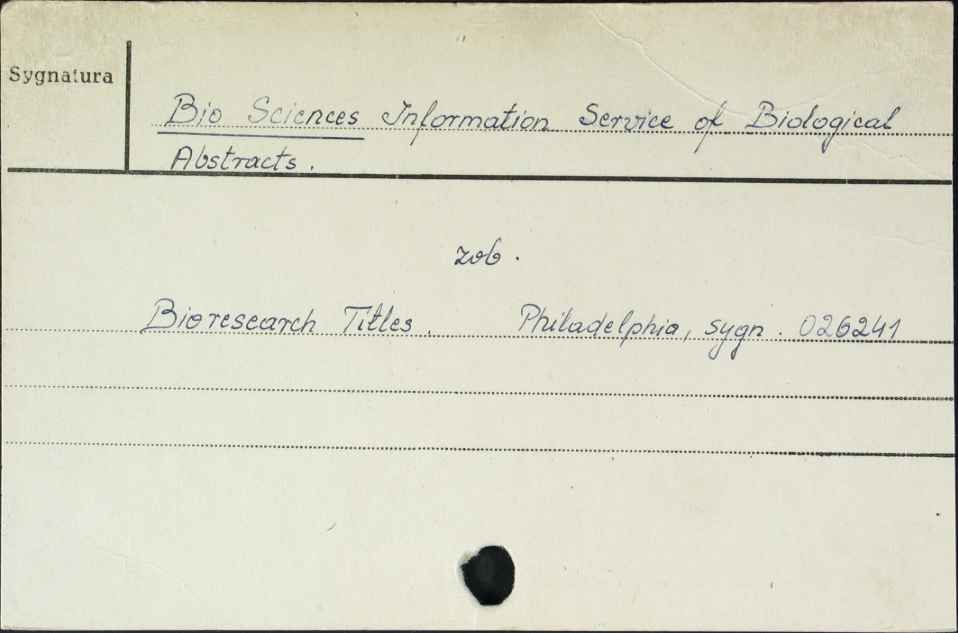 Sygnatura
Bio Sciences Information Service of Biological
Abstracts.
zob.
Bioresearch Titles. Philadelphia, sygn. 026241